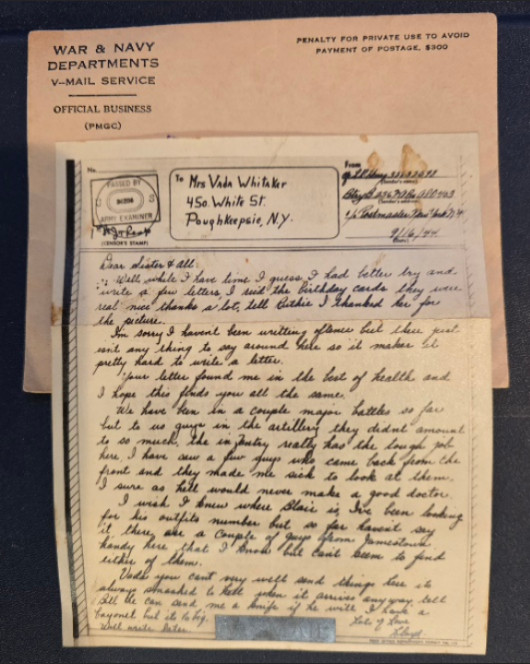 WAR & NAVY
DEPARTMENTS
V-MAIL SERVICE
OFFICIAL BUSINESS
(PMGC)
PENALTY FOR PRIVATE USE TO AVOID
PAYMENT OF POSTAGE, $300
No.
PASSED BY
ARMY EXAMINER
(CENSOR'S STAMP)
To Mrs Vada Whitaker
450 White St.
Poughkeepsie, N.Y.
From
(Sender's name)
(Sender's address)
c/o Postmaster New York N.Y.
9/16/44
(Date)
Dear Sister & all:
Well while I have time I guess I had better try and
write a few letters, I rec'd the Birthday cards they were
real nice thanks a lot, tell I thanked her for
the picture.
I'm sorry I haven't been writting oftener but there just
isn't any thing to say around here so it makes it
pretty hard to write a letter.
Your letter found me in the best of health and
I hope this finds you all the same.
We have been in a couple major battles so far
but to us guys in the artillery they didnt amount
to so much, the infantry really has the tough job
here, I have saw a few guys who came back from the
front and they made me sick to look at them.
I sure as hell would never make a good doctor.
I wish I knew where Blair is, I've been looking
for his outfits number but so far haven't
it there are a couple of guys from Jamestown
handy here that I know but cant seem to find
either of them.
Vada you cant very well send things here its
always smashed to hell when it arrives anyway, tell
Bill he can send me a knife if he will I have a
bayonet but its to big. Lots of Love
Will write later Lloyd